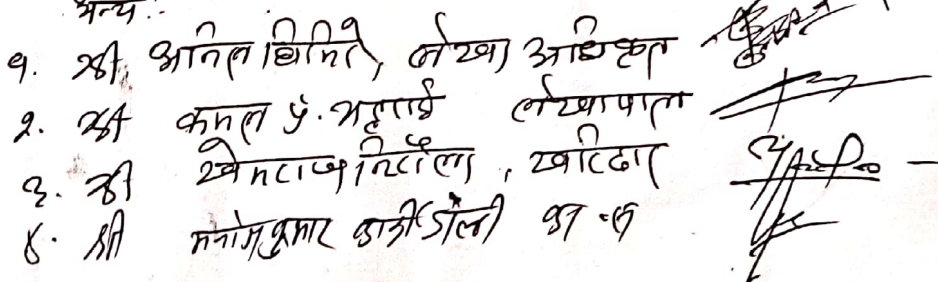 अन्य :-
१. श्री अनिल घिमिरे, लेखा अधिकृत
२. श्री कमल प्र. भट्टराई लेखापाल
३. श्री खेमराज निरौला, खरिदार
४. श्री मनोज कुमार कार्की डोली का.स